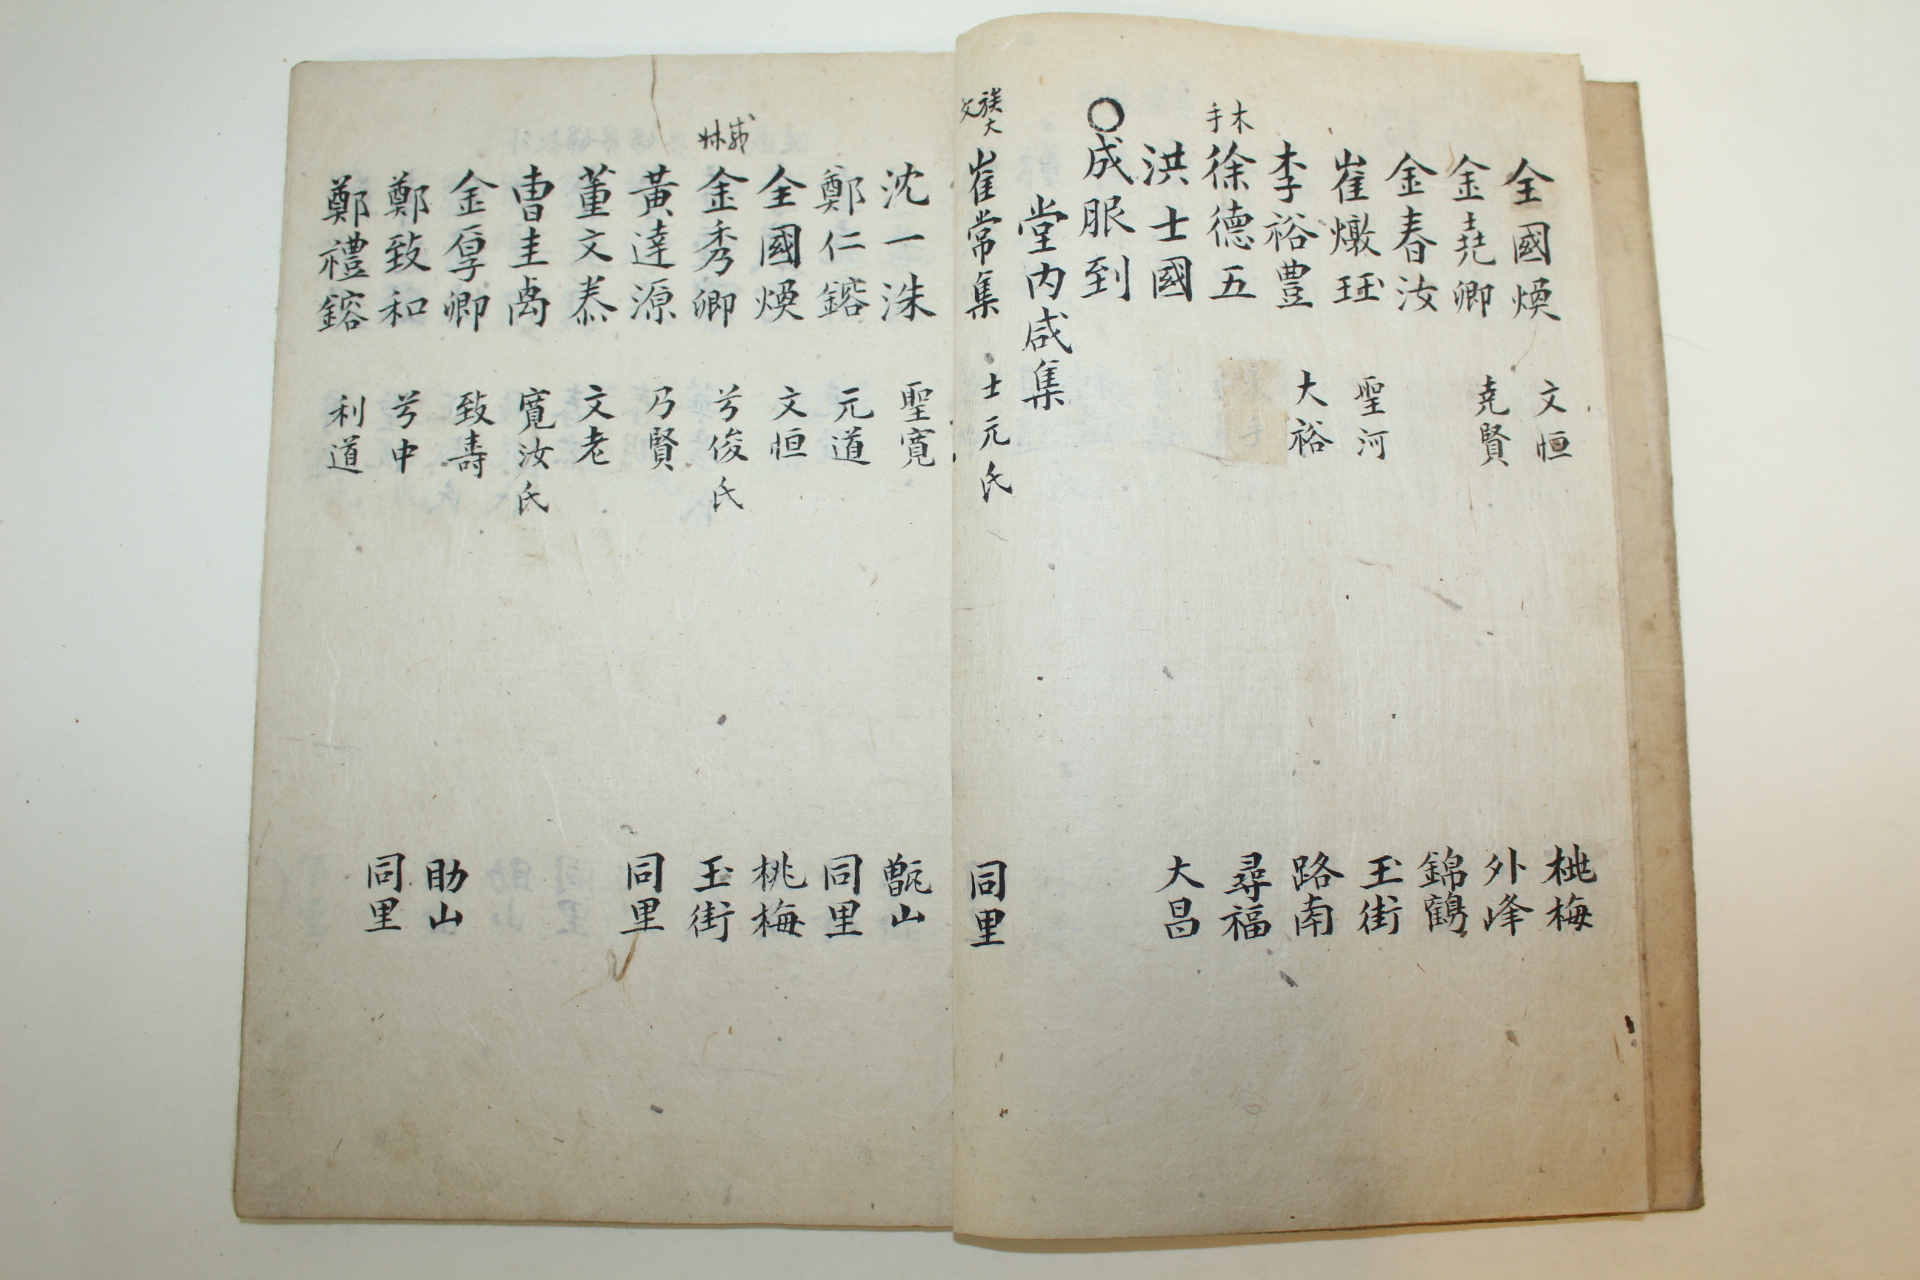 全國煥 文恒 桃梅
金堯卿 堯賢 外峰
金春汝 錦鶴
崔燉珏 聖河 玉街
李裕豊 大裕 路南
木手
徐德五 尋福
洪士國 大昌
○成服到
堂内咸集
族大父
崔常集 士元氏 同里
沈一洙 聖寬 甑山
鄭仁鎔 元道 同里
全國煥 文恒 桃梅
金秀卿 兮俊氏 玉街
黃達源 乃賢 同里
董文泰 文老
曺圭禹 寬汝氏
金厚卿 致壽 助山
鄭致和 兮中 同里
鄭禮鎔 利道